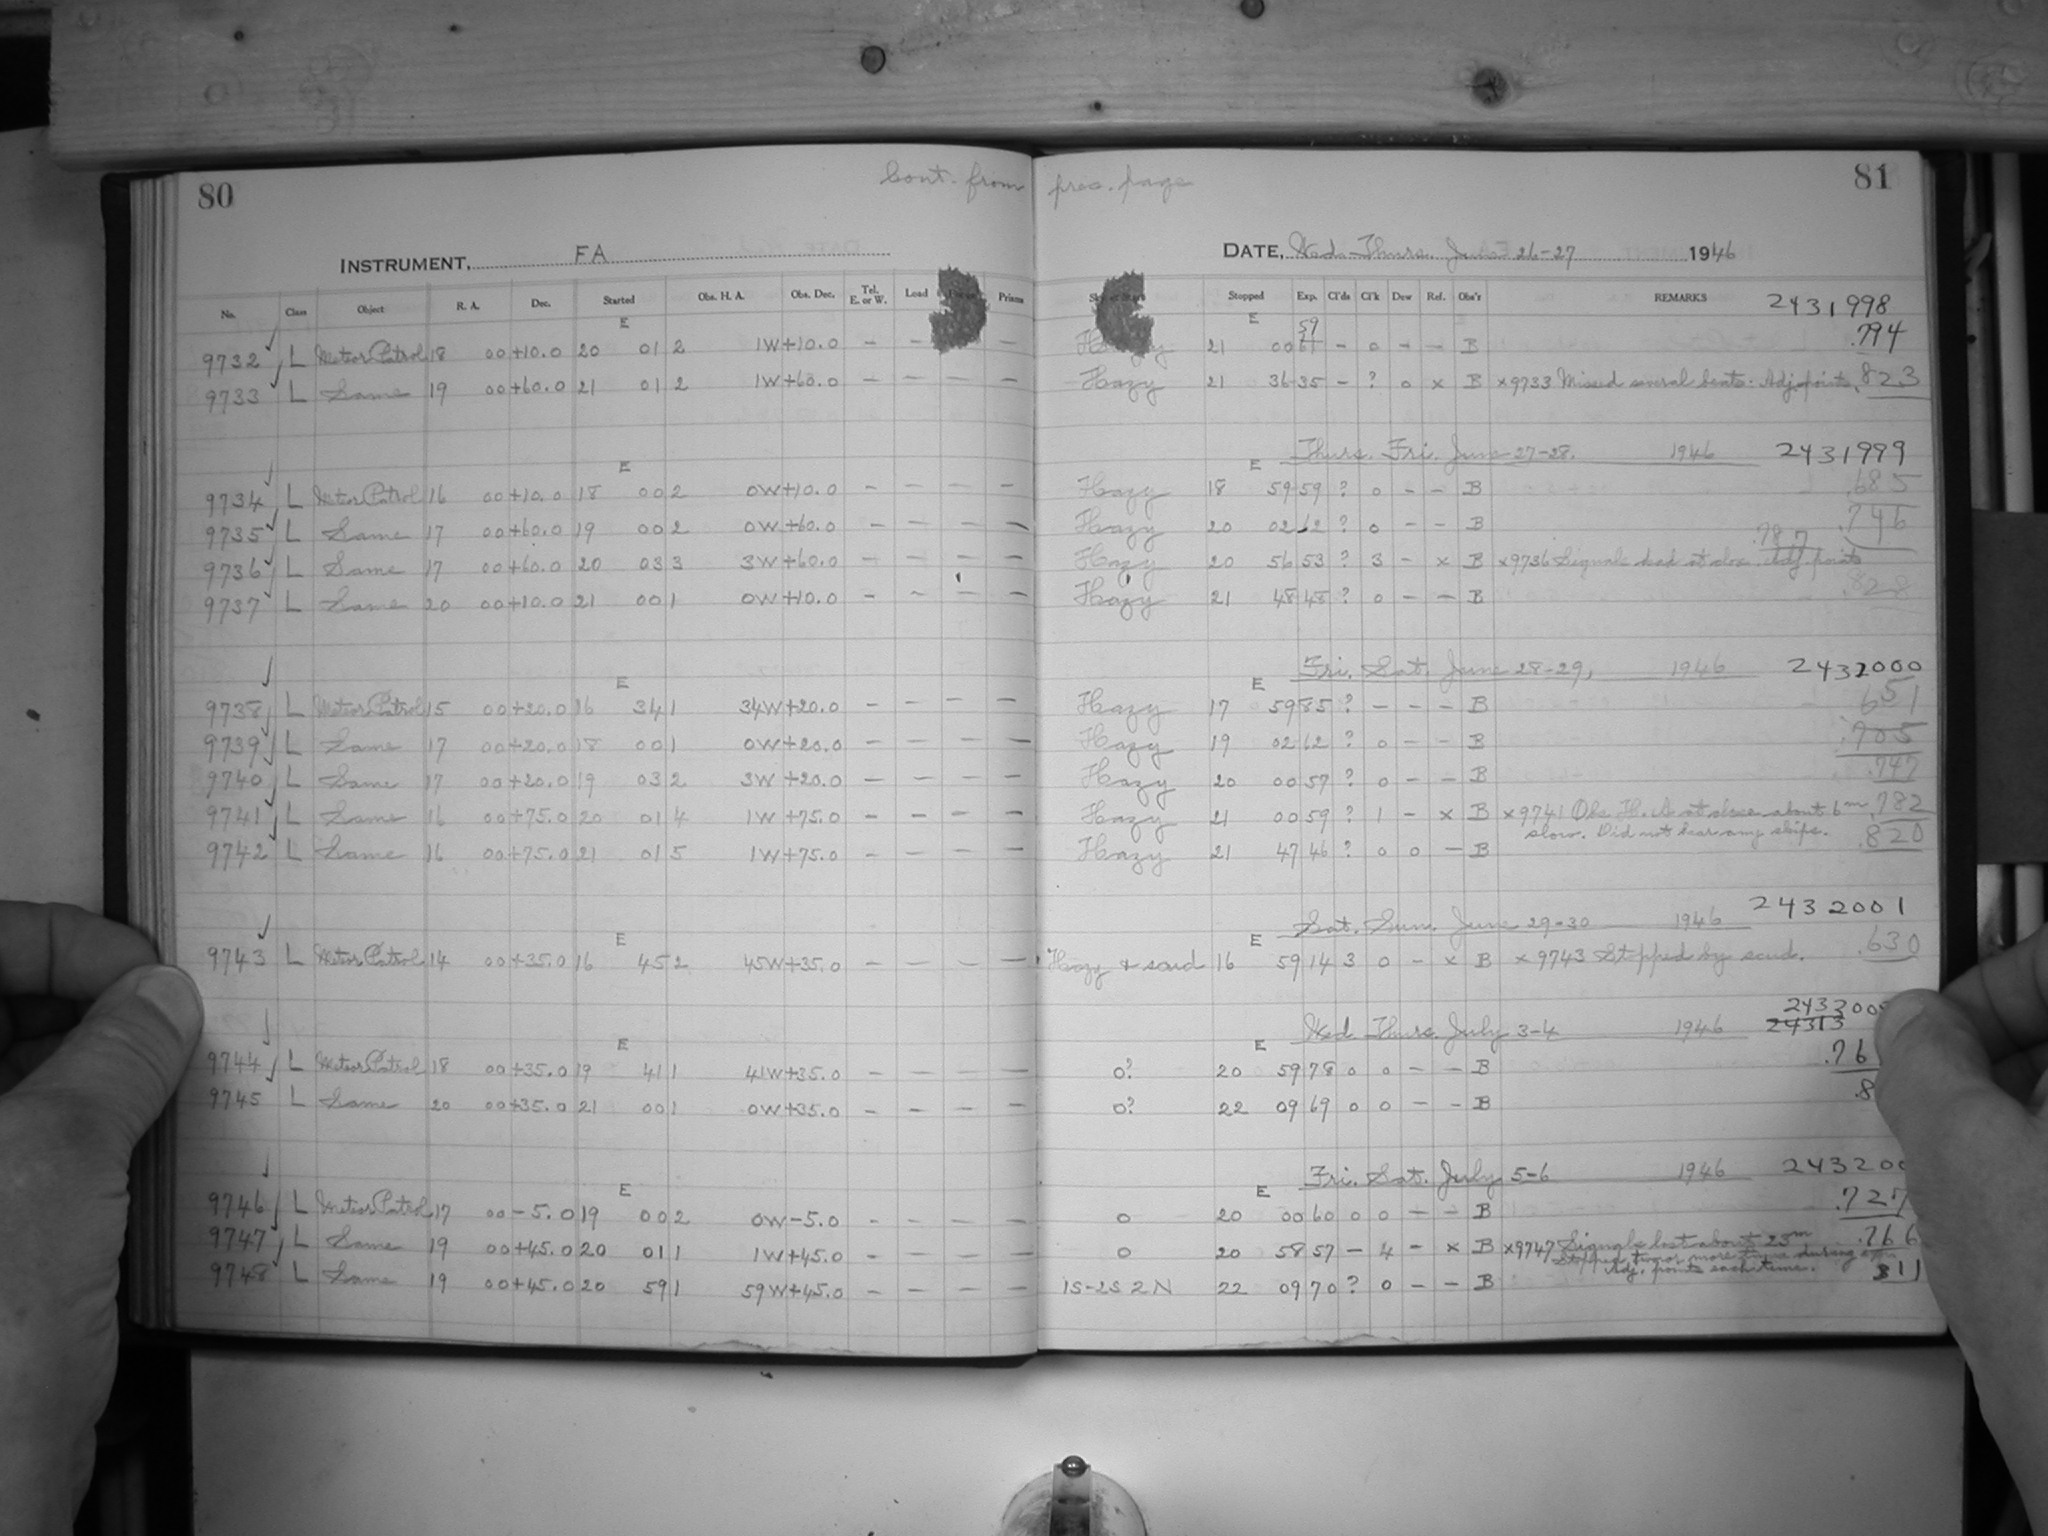 80
Cont. from prec. page
81
INSTRUMENT, FA
DATE, Wed. Thurs. June 26-27 1946
No. Class Object R. A. Dec. Started Obs. H. A. Obs. Dec. Tel. E. or W. Load Prisms Stopped Exp. Cl'ds Cl'k Dew Ref. Obs'r REMARKS 2431998
E E 59
9732 L Meteor Patrol 18 00 +10.0 20 01 2 1W +10.0 – – – Hazy 21 00 61 – 0 – – B .794
9733 L Same 19 00 +60.0 21 01 2 1W +60.0 – – – – Hazy 21 36 35 – ? 0 x B x9733 Missed several beats. Adj. points. .823
Thurs. Fri. June 27-28. 1946 2431999
E E
9734 L Meteor Patrol 16 00 +10.0 18 00 2 0W +10.0 – – – – Hazy 18 59 59 ? 0 – – B .685
9735 L Same 17 00 +60.0 19 00 2 0W +60.0 – – – – Hazy 20 02 62 ? 0 – – B .746
9736 L Same 17 00 +60.0 20 03 3 3W +60.0 – – – – Hazy 20 56 53 ? 3 – x B x9736 Signals dead at close. Adj. points .787
9737 L Same 20 00 +10.0 21 00 1 0W +10.0 – – – – Hazy 21 48 48 ? 0 – – B .828
Fri. Sat. June 28-29, 1946 2432000
E E
9738 L Meteor Patrol 15 00 +20.0 16 34 1 34W +20.0 – – – – Hazy 17 59 85 ? – – – B .651
9739 L Same 17 00 +20.0 18 00 1 0W +20.0 – – – – Hazy 19 02 62 ? 0 – – B .705
9740 L Same 17 00 +20.0 19 03 2 3W +20.0 – – – – Hazy 20 00 57 ? 0 – – B .747
9741 L Same 16 00 +75.0 20 01 4 1W +75.0 – – – – Hazy 21 00 59 ? 1 – x B x9741 Obs. H.A. at close about 6m .782
slow. Did not hear any skips.
9742 L Same 16 00 +75.0 21 01 5 1W +75.0 – – – – Hazy 21 47 46 ? 0 0 – B .820
Sat. Sun. June 29-30 1946 2432001
E E
9743 L Meteor Patrol 14 00 +35.0 16 45 2 45W +35.0 – – – – Hazy + scud 16 59 14 3 0 – x B x9743 Stopped by scud. .630
Wed. Thurs. July 3-4 1946 24313
E E
9744 L Meteor Patrol 18 00 +35.0 19 41 1 41W +35.0 – – – – 0? 20 59 78 0 0 – – B .76
9745 L Same 20 00 +35.0 21 00 1 0W +35.0 – – – – 0? 22 09 69 0 0 – – B .8
Fri. Sat. July 5-6 1946 243200
E E
9746 L Meteor Patrol 17 00 -5.0 19 00 2 0W -5.0 – – – – 0 20 00 60 0 0 – – B .727
9747 L Same 19 00 +45.0 20 01 1 1W +45.0 – – – – 0 20 58 57 – 4 – x B x9747 Signals lost about 25m .766
Stopped two or more times during exp.
Adj. points each time.
9748 L Same 19 00 +45.0 20 59 1 59W +45.0 – – – – 1S-2S 2N 22 09 70 ? 0 – – B 811